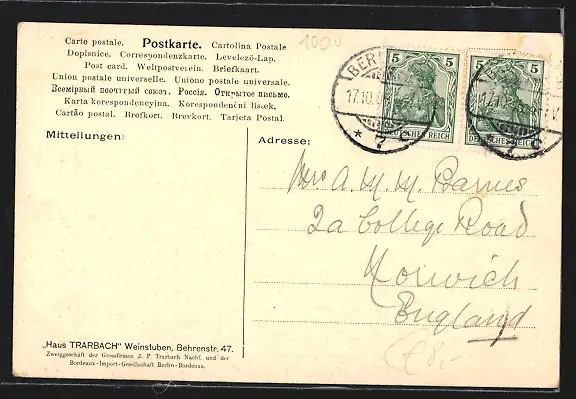 Carte postale. Postkarte. Cartolina Postale
Dopisnice. Correspondenzkarte. Levelező-Lap.
Post card. Weltpostverein. Briefkaart.
Union postale universelle. Unione postale universale.
Всемірный почтовый союзъ. Россія. Открытое письмо.
Karta korespondencyjna. Korespondenční lístek.
Cartão postal. Brefkort. Brevkort. Tarjeta Postal.
1050
5 5 5 5
BERLIN
17.10.
* 7 c
DEUTSCHES REICH DEUTSCHES REICH
Mitteilungen:
Adresse:
Mrs A. M. M. Barnes
2a College Road
Norwich
England
£8,-
„Haus TRARBACH" Weinstuben, Behrenstr. 47.
Zweiggeschäft der Grossfirmen J. P. Trarbach Nachf. und der
Bordeaux-Import-Gesellschaft Berlin-Bordeaux.